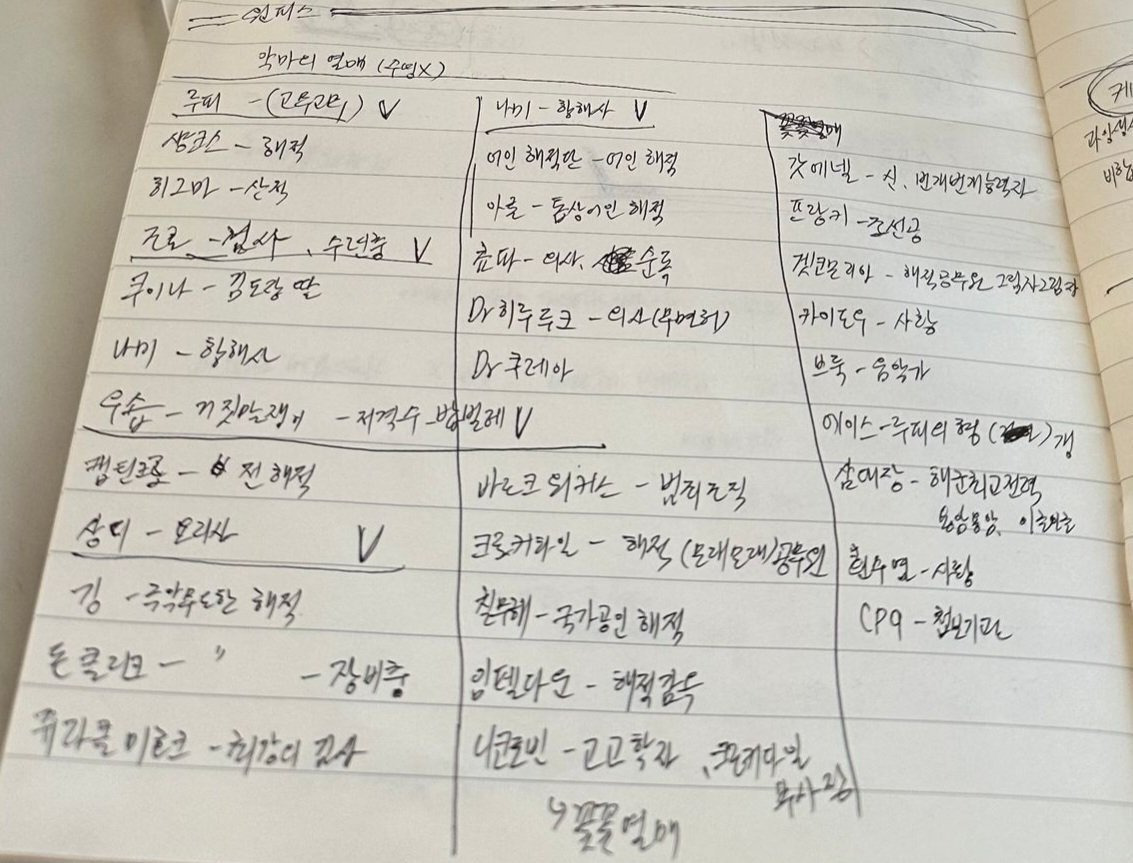 원피스
악마의 열매 (수영X)
루피 - (고무고무) V
샹크스 - 해적
히그마 - 산적
조로 - 검사, 수련중 V
쿠이나 - 김도장 딸
나미 - 항해사
우솝 - 거짓말쟁이 - 저격수 - 밥벌레 V
캡틴크로 - 전 해적
상디 - 요리사 V
깅 - 극악무도한 해적
돈 클리크 - " - 장비충
쥬라클 미호크 - 최강의 검사
나미 - 항해사 V
어인 해적단 - 어인 해적
아론 - 톱상어인 해적
쵸파 - 의사, 순록
Dr 히루루크 - 의사 (무면허)
Dr 쿠레아
바로크 워커스 - 범죄조직
크로커다일 - 해적 (모래모래) 공무원
칠무해 - 국가공인 해적
임펠다운 - 해적감옥
니코로빈 - 고고학자, 크로커다일
부사장
↳ 꽃꽃열매
갓에넬 - 신, 번개번개능력자
프랑키 - 조선공
겟코모리아 - 해적공무원 그림자그림자
카이도우 - 사황
브룩 - 음악가
에이스 - 루피의 형 ( )
삼대장 - 해군최고전력
흰수염 - 사황
CP9 - 첩보기관